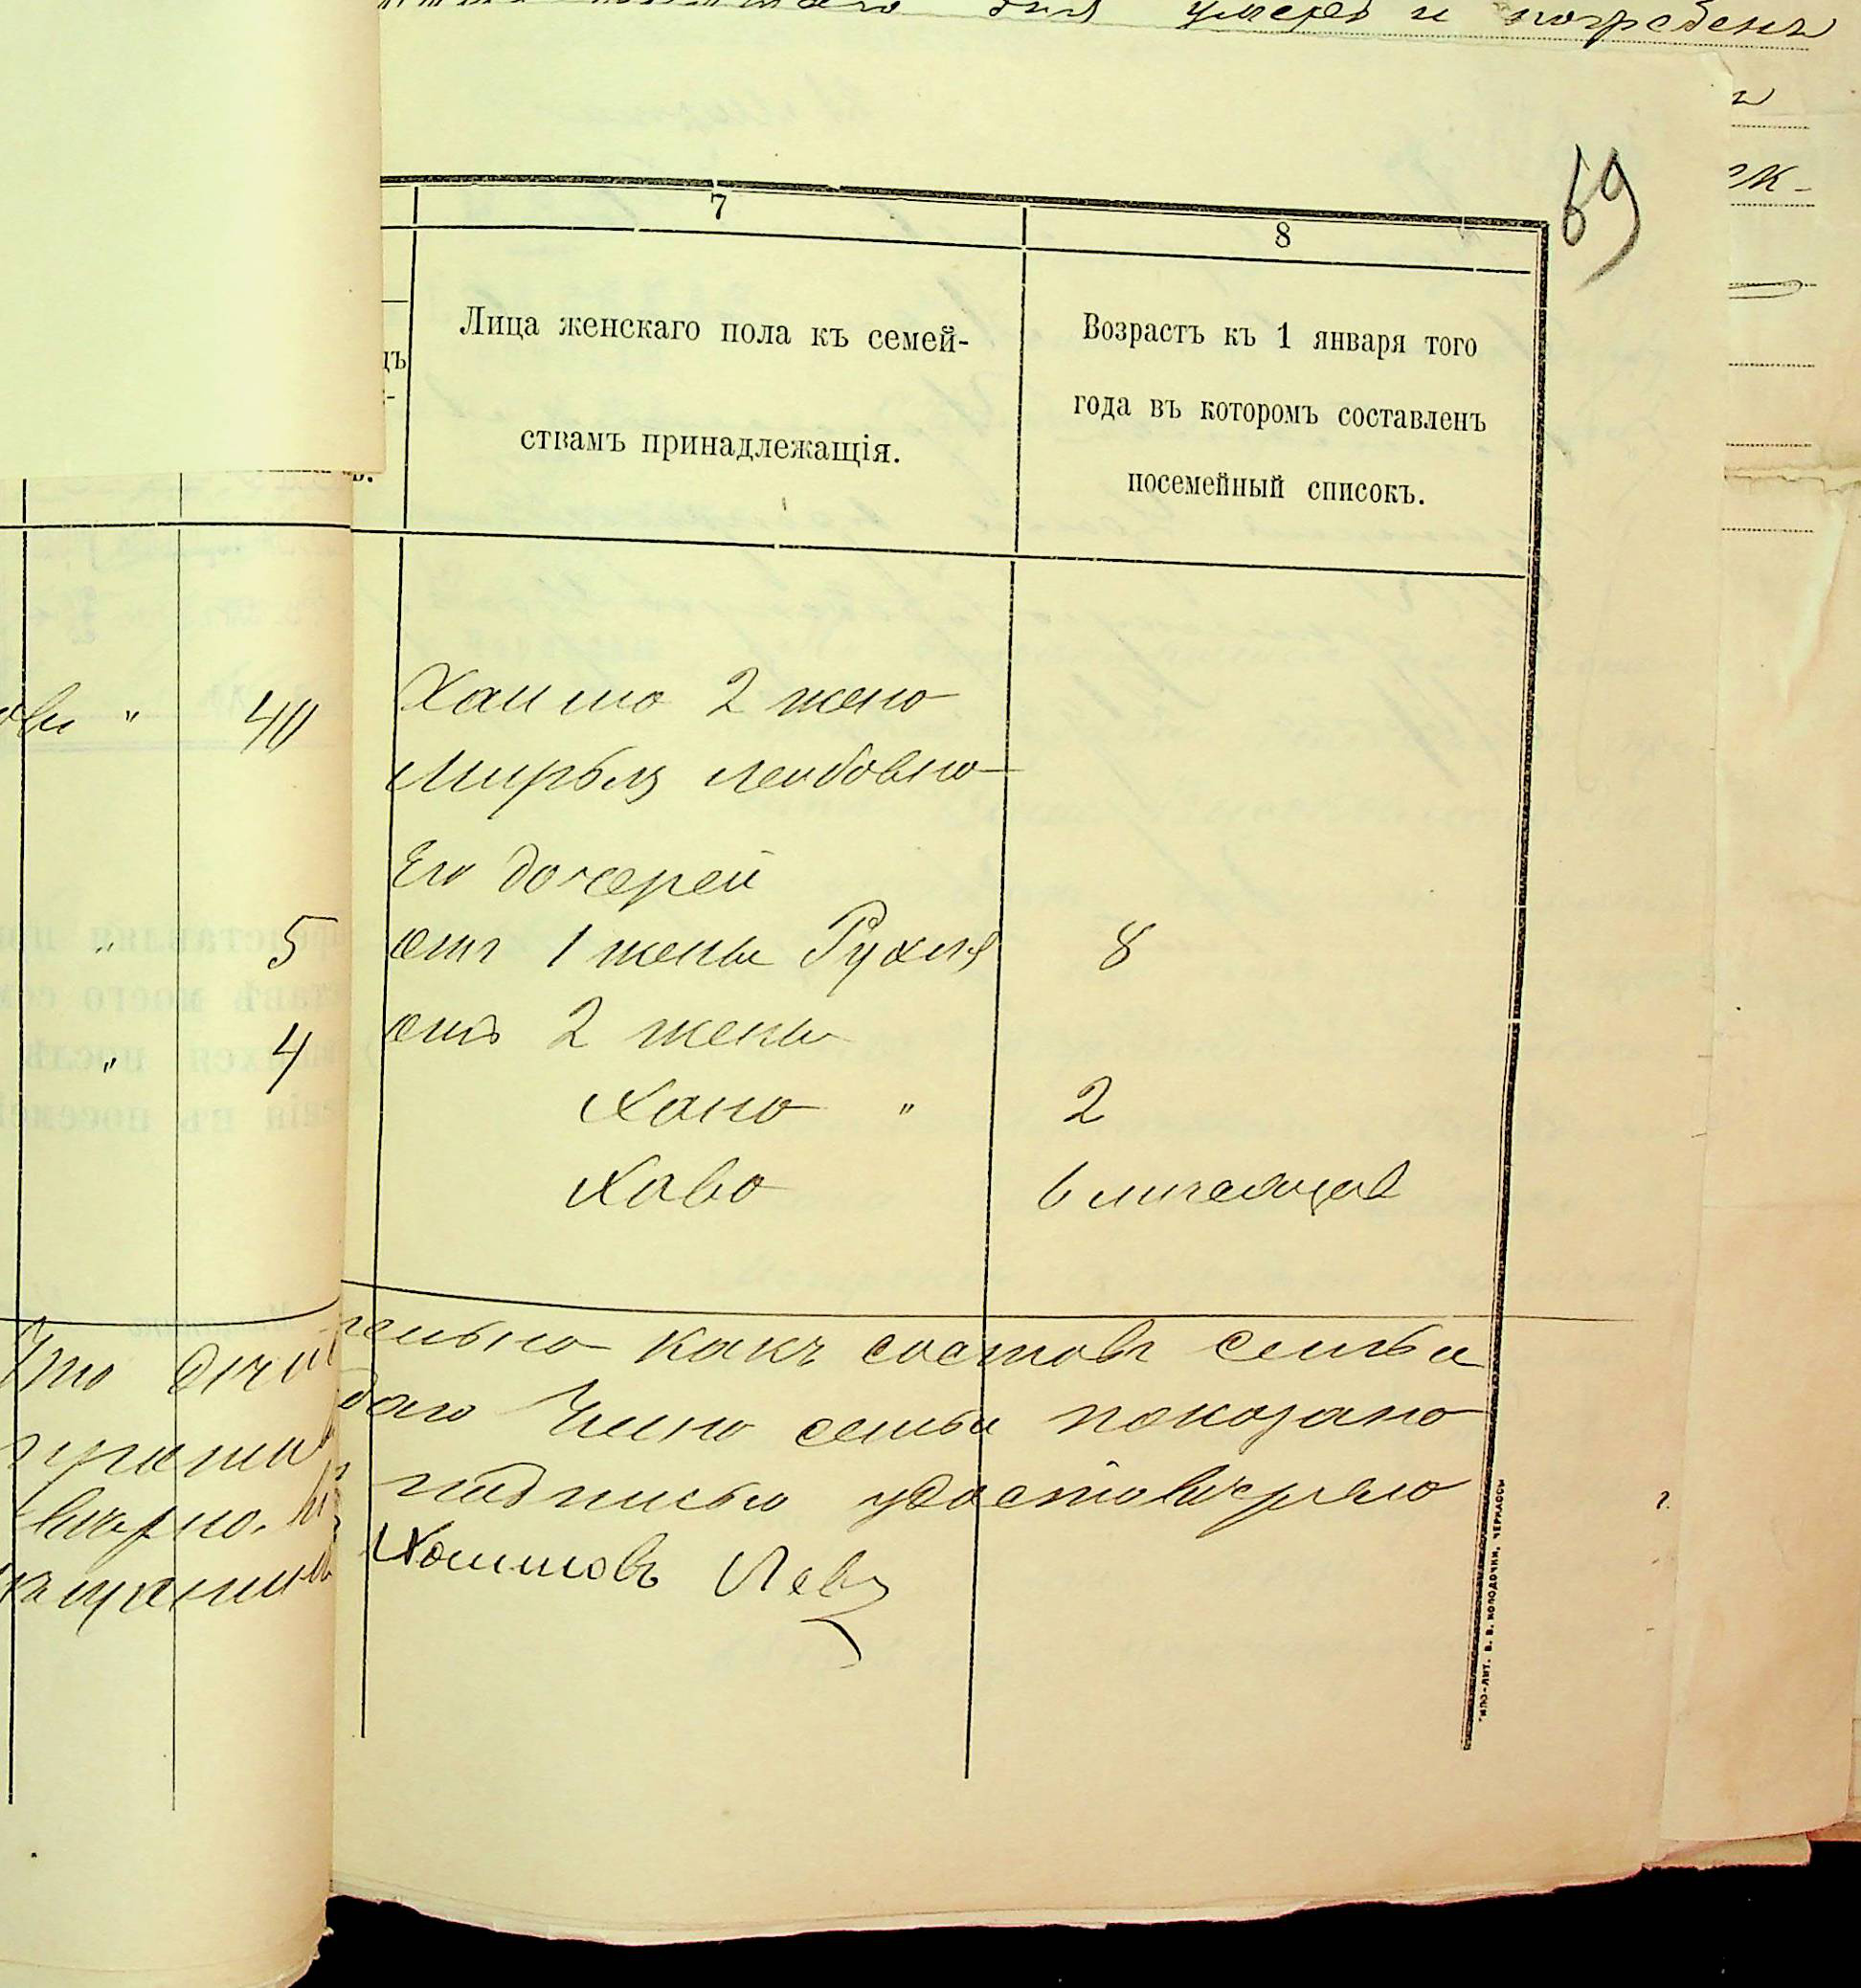 умеръ и погребенъ
69
7
8
Лица женскаго пола къ семей-
ствамъ принадлежащія.
Возрастъ къ 1 января того
года въ котором составленъ
посемейный списокъ.
" 40
Хаима 2 жена
Мирьля Лейбовна
Его дочерей
" 5
отъ 1 жены Рухля 8
отъ 2 жены
" 4
Хана " 2
Хава 6 месяцев
Что какъ составъ семьи
члена семьи показано
верно. подписью удостоверяю
Хаимовъ Лев
ТИПО-ЛИТ. В. В. КОЛОДОЧКИ, ЧЕРКАССЫ